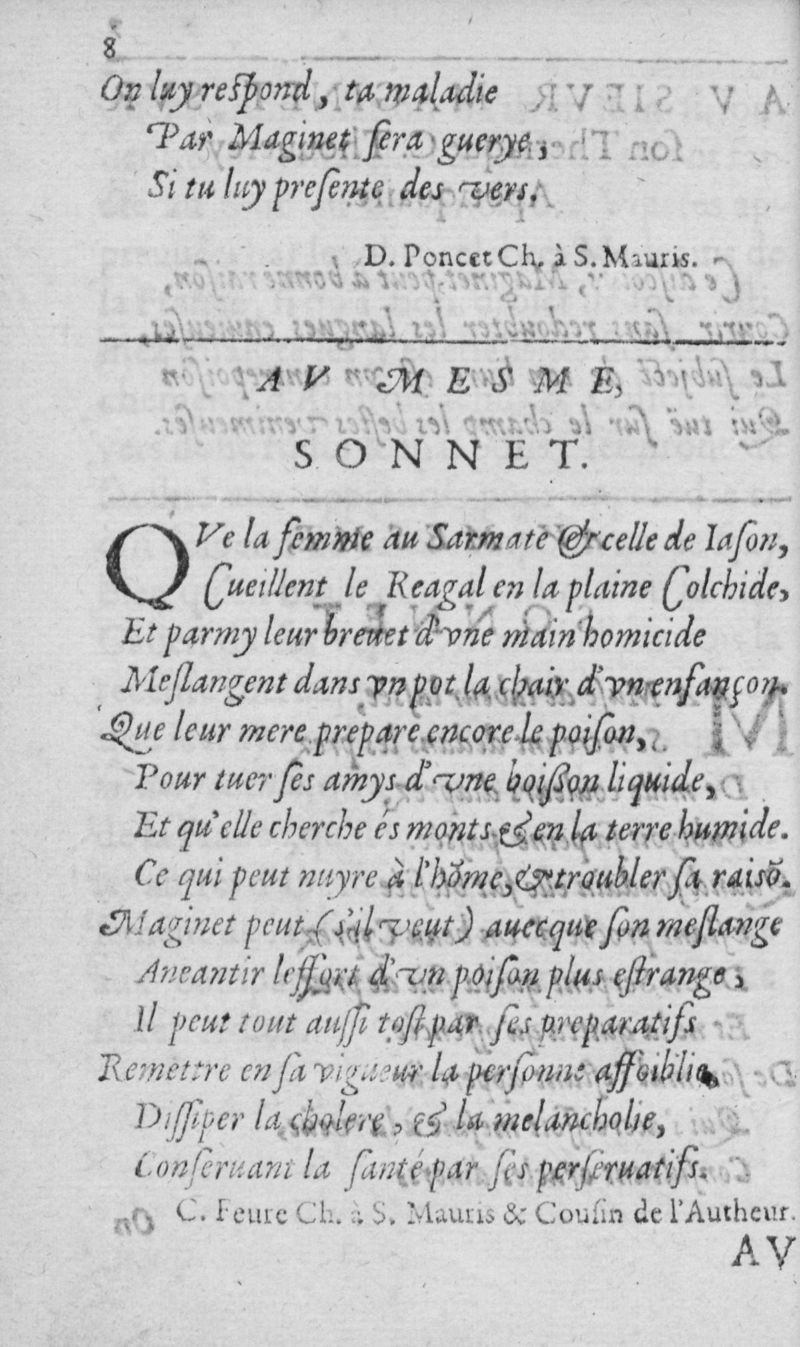 8
On luy reſpond, ta maladie
Par Maginet ſera guerye,
Si tu luy preſente des vers.
D. Poncet Ch. à S. Mauris.
AV MESME,
SONNET.
QVe la femme au Sarmate & celle de Iaſon,
Cueillent le Reagal en la plaine Colchide,
Et parmy leur breuet d'vne main homicide
Meſlangent dans vn pot la chair d'vn enfançon.
Que leur mere prepare encore le poiſon,
Pour tuer ſes amys d'vne boiſſon liquide,
Et qu'elle cherche és monts & en la terre humide.
Ce qui peut nuyre à l'hõme, & troubler ſa raisõ.
Maginet peut (s'il veut) auecque ſon meſlange
Aneantir leffort d'vn poiſon plus eſtrange,
Il peut tout auſſi toſt par ſes preparatifs
Remettre en ſa vigueur la perſonne affoiblie,
Diſſiper la cholere, & la melancholie,
Conſeruant la ſanté par ſes perſeruatifs.
C. Feure Ch. à S. Mauris & Couſin de l'Autheur.
AV